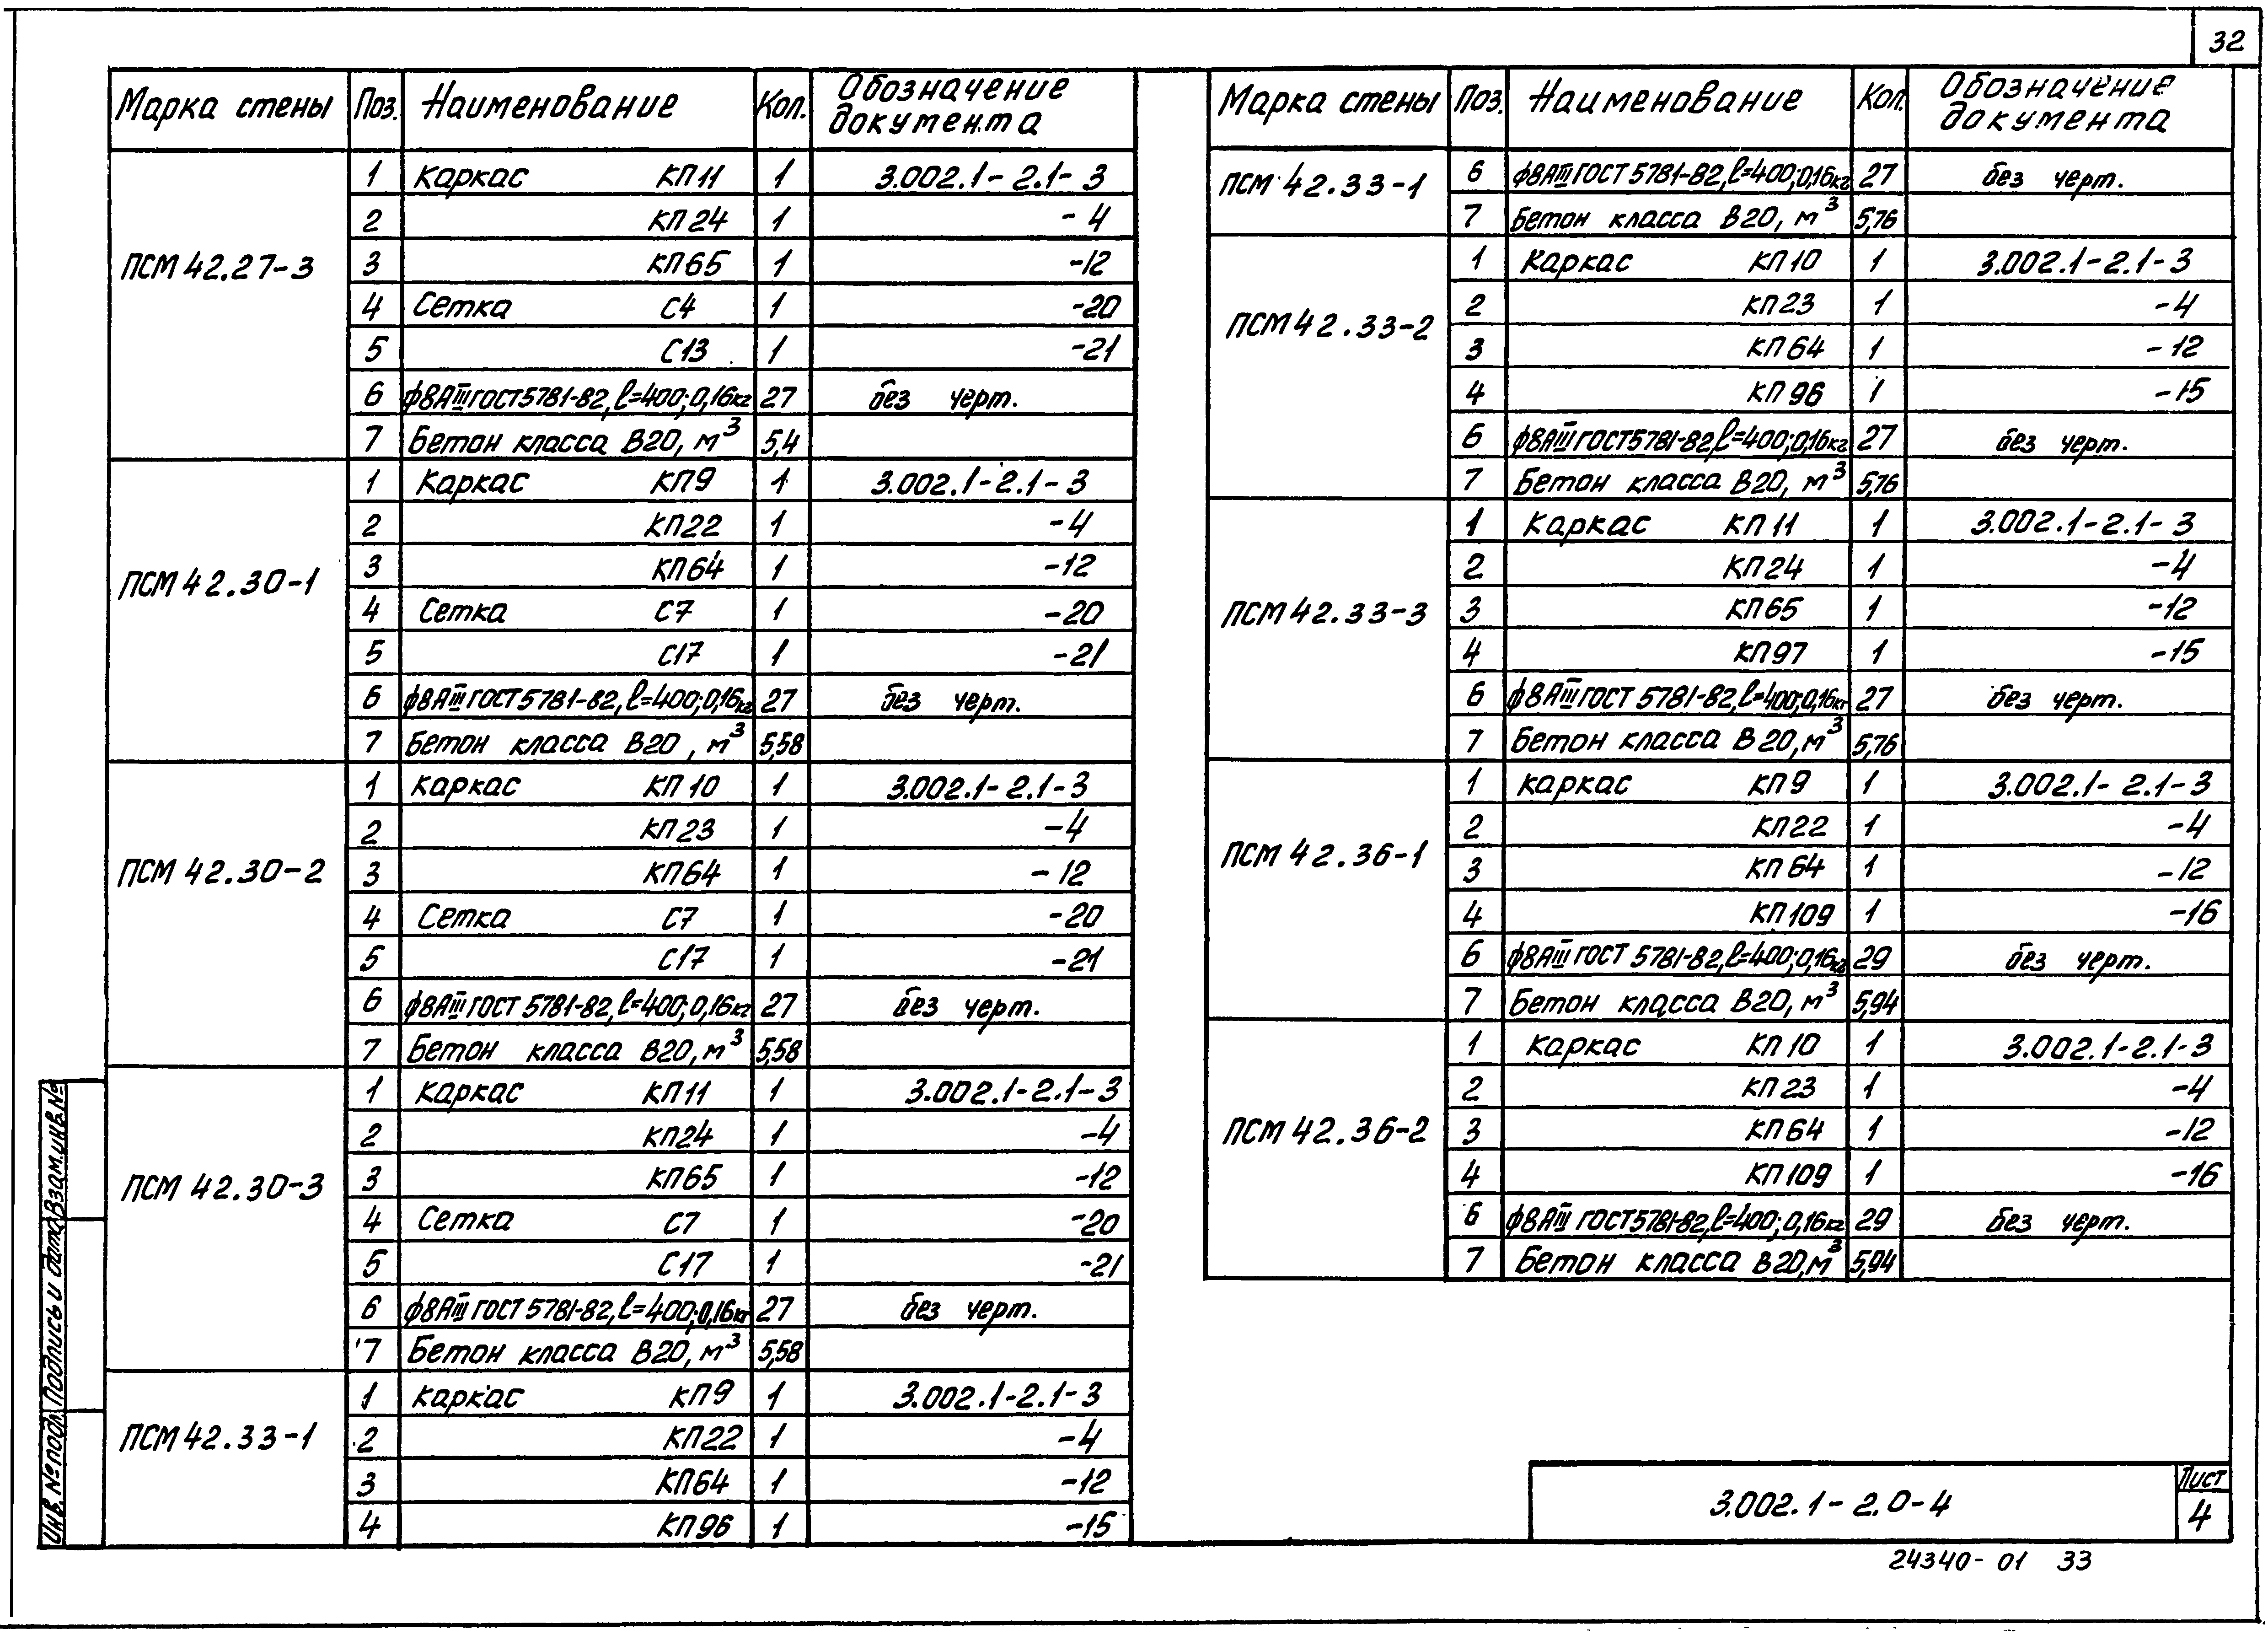 32
Марка стены Поз. Наименование Кол. Обозначение документа
ПСМ 42.27-3
1 Каркас КП11 1 3.002.1-2.1-3
2 КП24 1 -4
3 КП65 1 -12
4 Сетка С4 1 -20
5 С13 1 -21
6 ф8АIII ГОСТ 5781-82, ℓ=400; 0,16кг 27 без черт.
7 Бетон класса В20, м³ 5,4
ПСМ 42.30-1
1 Каркас КП9 1 3.002.1-2.1-3
2 КП22 1 -4
3 КП64 1 -12
4 Сетка С7 1 -20
5 С17 1 -21
6 ф8АIII ГОСТ 5781-82, ℓ=400; 0,16кг 27 без черт.
7 Бетон класса В20, м³ 5,58
ПСМ 42.30-2
1 Каркас КП10 1 3.002.1-2.1-3
2 КП23 1 -4
3 КП64 1 -12
4 Сетка С7 1 -20
5 С17 1 -21
6 ф8АIII ГОСТ 5781-82, ℓ=400; 0,16кг 27 без черт.
7 Бетон класса В20, м³ 5,58
ПСМ 42.30-3
1 Каркас КП11 1 3.002.1-2.1-3
2 КП24 1 -4
3 КП65 1 -12
4 Сетка С7 1 -20
5 С17 1 -21
6 ф8АIII ГОСТ 5781-82, ℓ=400; 0,16кг 27 без черт.
7 Бетон класса В20, м³ 5,58
ПСМ 42.33-1
1 Каркас КП9 1 3.002.1-2.1-3
2 КП22 1 -4
3 КП64 1 -12
4 КП96 1 -15
Марка стены Поз. Наименование Кол. Обозначение документа
ПСМ 42.33-1
6 ф8АIII ГОСТ 5781-82, ℓ=400; 0,16кг 27 без черт.
7 Бетон класса В20, м³ 5,76
ПСМ 42.33-2
1 Каркас КП10 1 3.002.1-2.1-3
2 КП23 1 -4
3 КП64 1 -12
4 КП96 1 -15
6 ф8АIII ГОСТ 5781-82, ℓ=400; 0,16кг 27 без черт.
7 Бетон класса В20, м³ 5,76
ПСМ 42.33-3
1 Каркас КП11 1 3.002.1-2.1-3
2 КП24 1 -4
3 КП65 1 -12
4 КП97 1 -15
6 ф8АIII ГОСТ 5781-82, ℓ=400; 0,16кг 27 без черт.
7 Бетон класса В20, м³ 5,76
ПСМ 42.36-1
1 Каркас КП9 1 3.002.1-2.1-3
2 КП22 1 -4
3 КП64 1 -12
4 КП109 1 -16
6 ф8АIII ГОСТ 5781-82, ℓ=400; 0,16кг 29 без черт.
7 Бетон класса В20, м³ 5,94
ПСМ 42.36-2
1 Каркас КП10 1 3.002.1-2.1-3
2 КП23 1 -4
3 КП64 1 -12
4 КП109 1 -16
6 ф8АIII ГОСТ 5781-82, ℓ=400; 0,16кг 29 без черт.
7 Бетон класса В20, м³ 5,94
Инв. № подл. Подпись и дата Взам.инв.№
3.002.1-2.0-4
Лист
4
24340-01 33